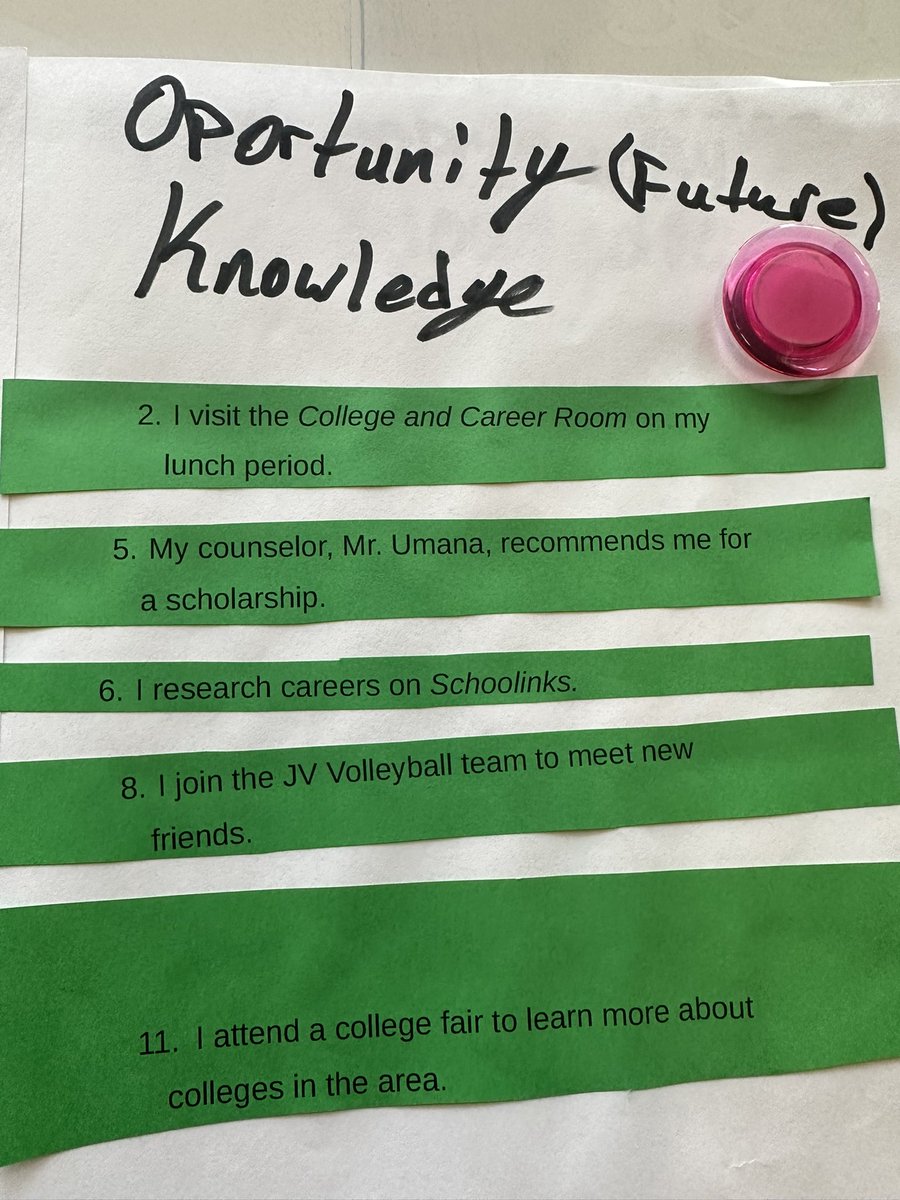 Oportunity (Future)
Knowledge
2. I visit the College and Career Room on my
lunch period.
5. My counselor, Mr. Umana, recommends me for
a scholarship.
6. I research careers on Schoolinks.
8. I join the JV Volleyball team to meet new
friends.
11. I attend a college fair to learn more about
colleges in the area.